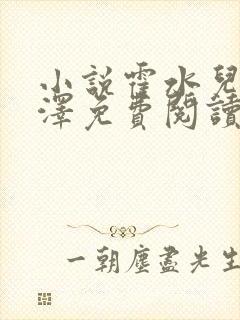 小說霍水兒
澤免費閱讀
一朝塵盡光生